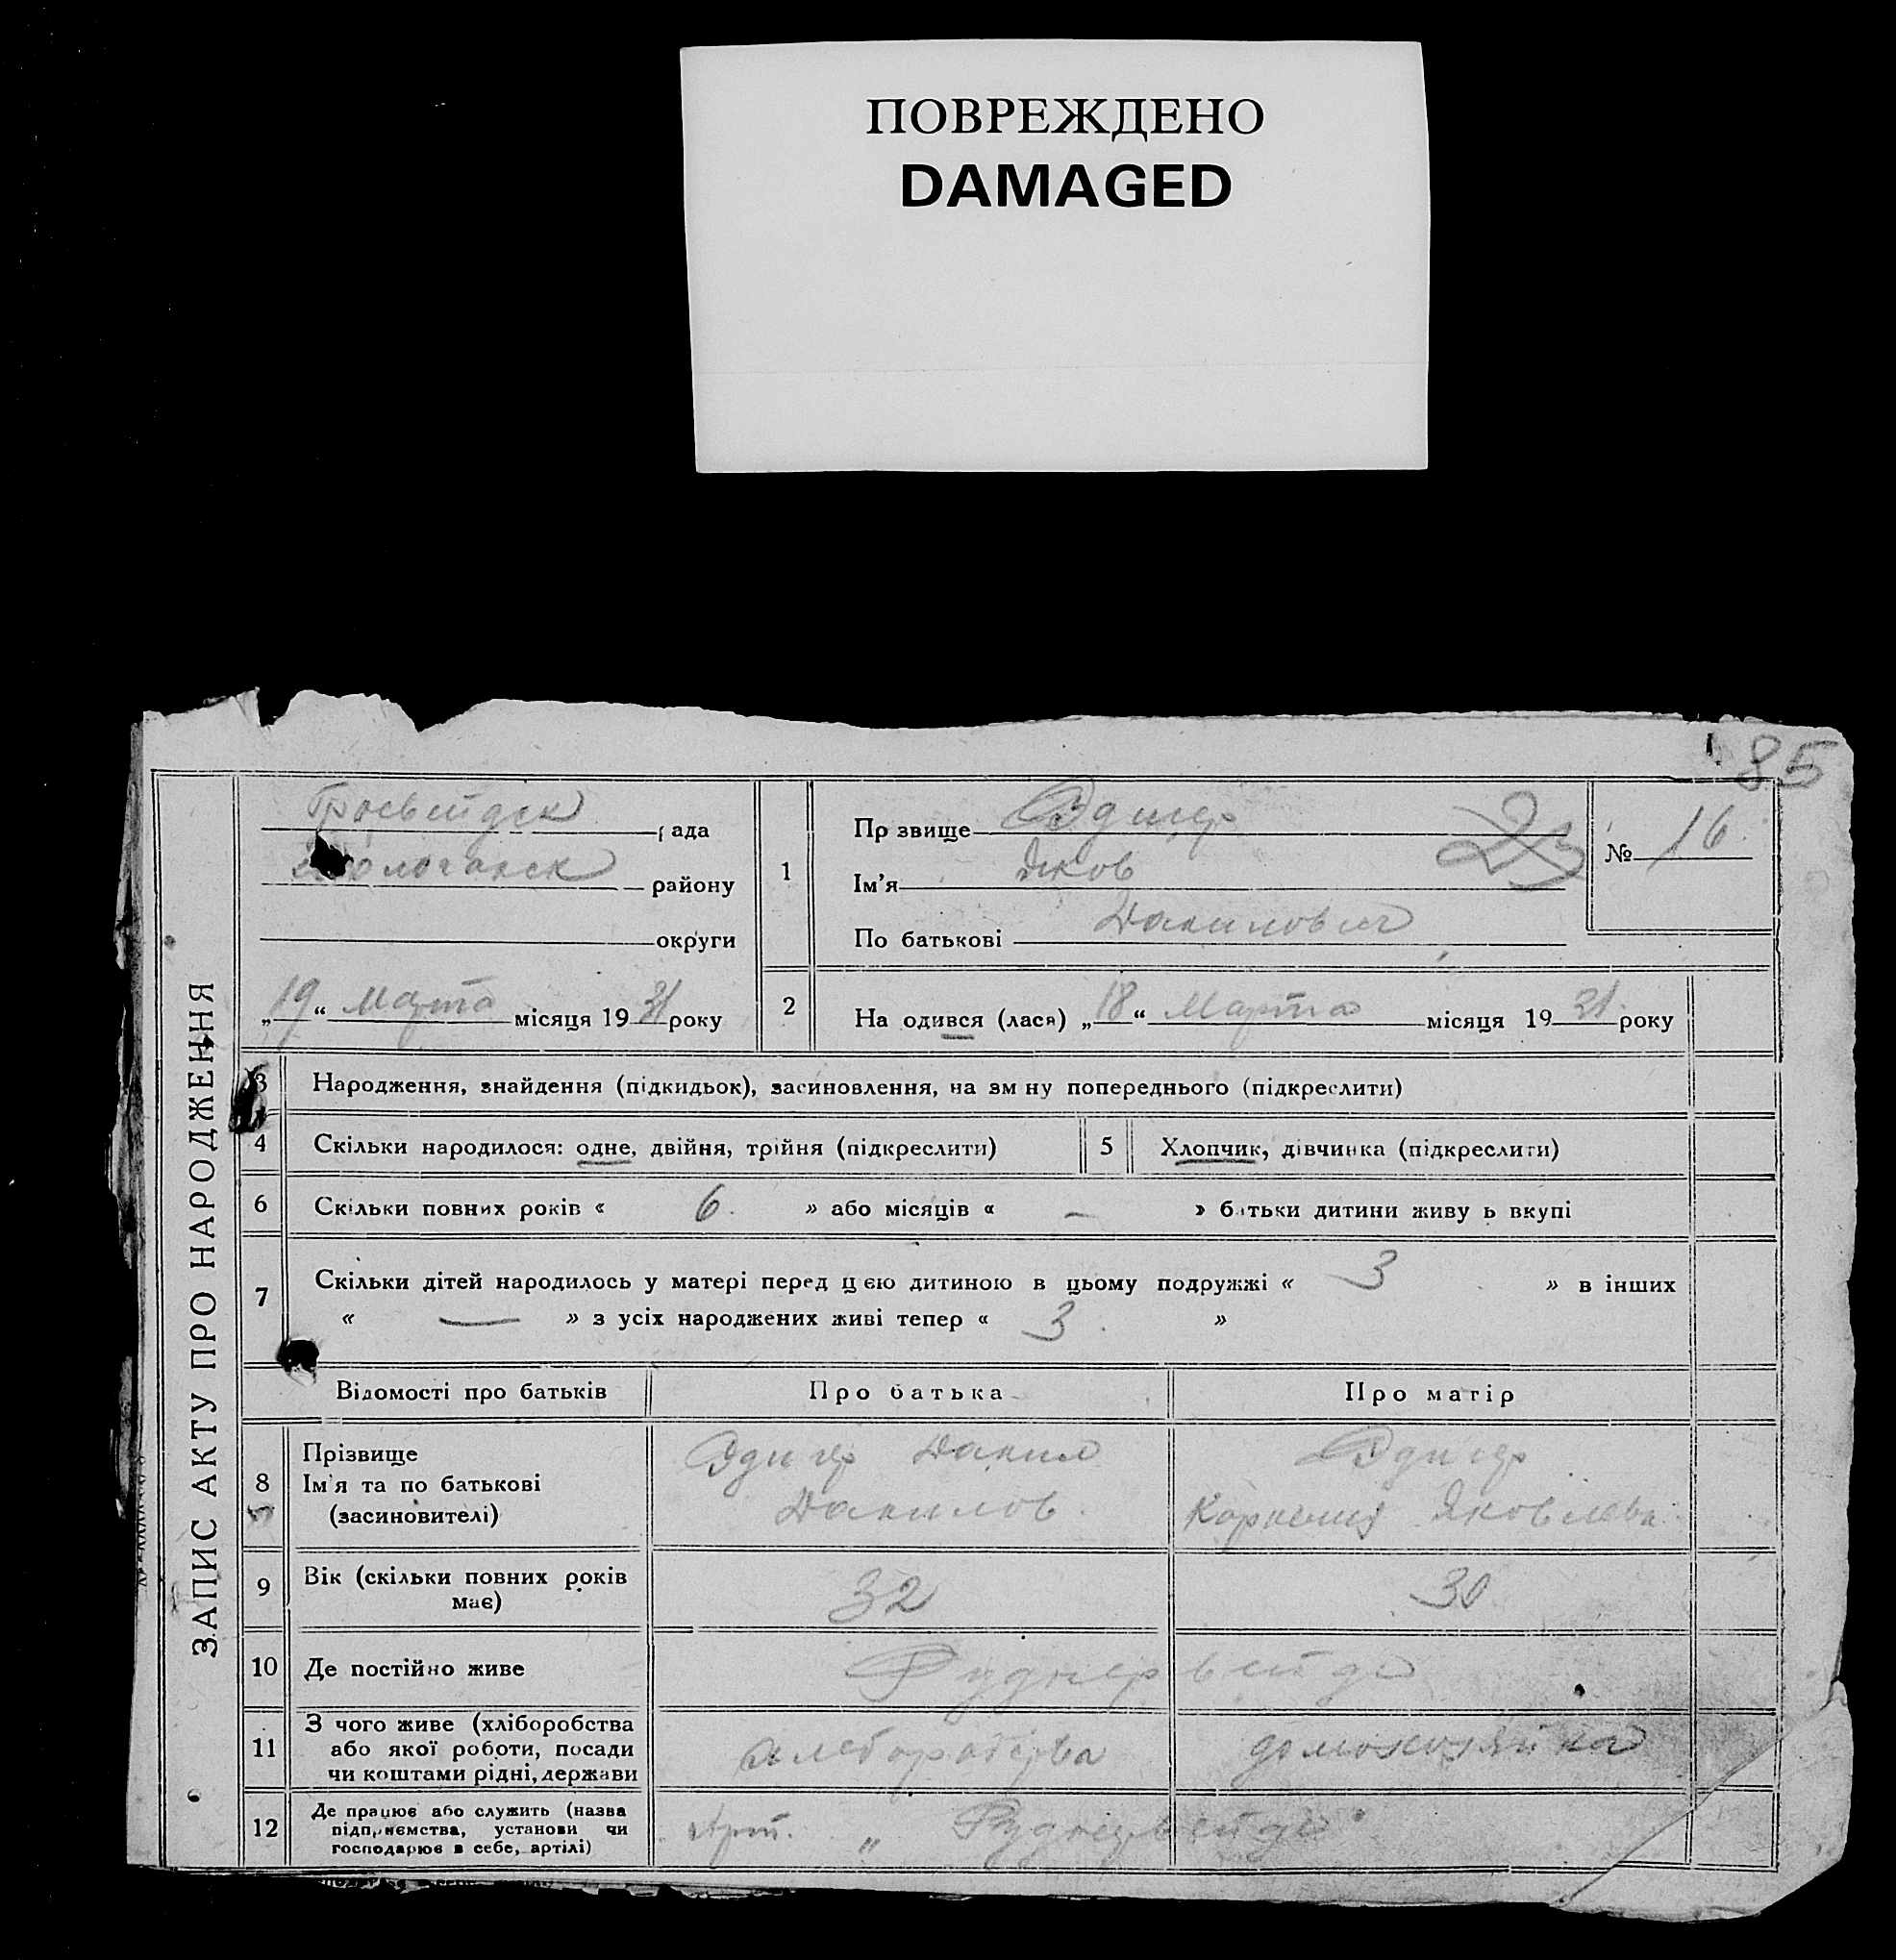 ПОВРЕЖДЕНО
DAMAGED
85
ЗАПИС АКТУ ПРО НАРОДЖЕННЯ
рада
району
округи
„19“ Марта місяця 1931 року
1
Пр звище Эдигер
Ім'я Яков
По батькові Данилович
23
№ 16
2
На одився (лася) „18“ Марта місяця 1931 року
3 Народження, знайдення (підкидьок), засиновлення, на зм ну попереднього (підкреслити)
4 Скільки народилося: одне, двійня, трійня (підкреслити) 5 Хлопчик, дівчинка (підкреслити)
6 Скільки повних років « 6. » або місяців « - » батьки дитини живу ь вкупі
7 Скільки дітей народилось у матері перед цією дитиною в цьому подружжі « 3 » в інших
« — » з усіх народжених живі тепер « 3. »
Відомості про батьків Про батька Про матір
8 Прізвище
Ім'я та по батькові
(засиновителі)
Эдигер Данил
Данилов.
Эдигер
Корнелия Яковлевн.
9 Вік (скільки повних років
має)
32 30
10 Де постійно живе Руднервейде
11 З чого живе (хліборобства
або якої роботи, посади
чи коштами рідні, держави
хлеборобства домохозяйка
12 Де працює або служить (назва
підприємства, установи чи
господарює в себе, артілі)
Арт. „ Руднервейде"